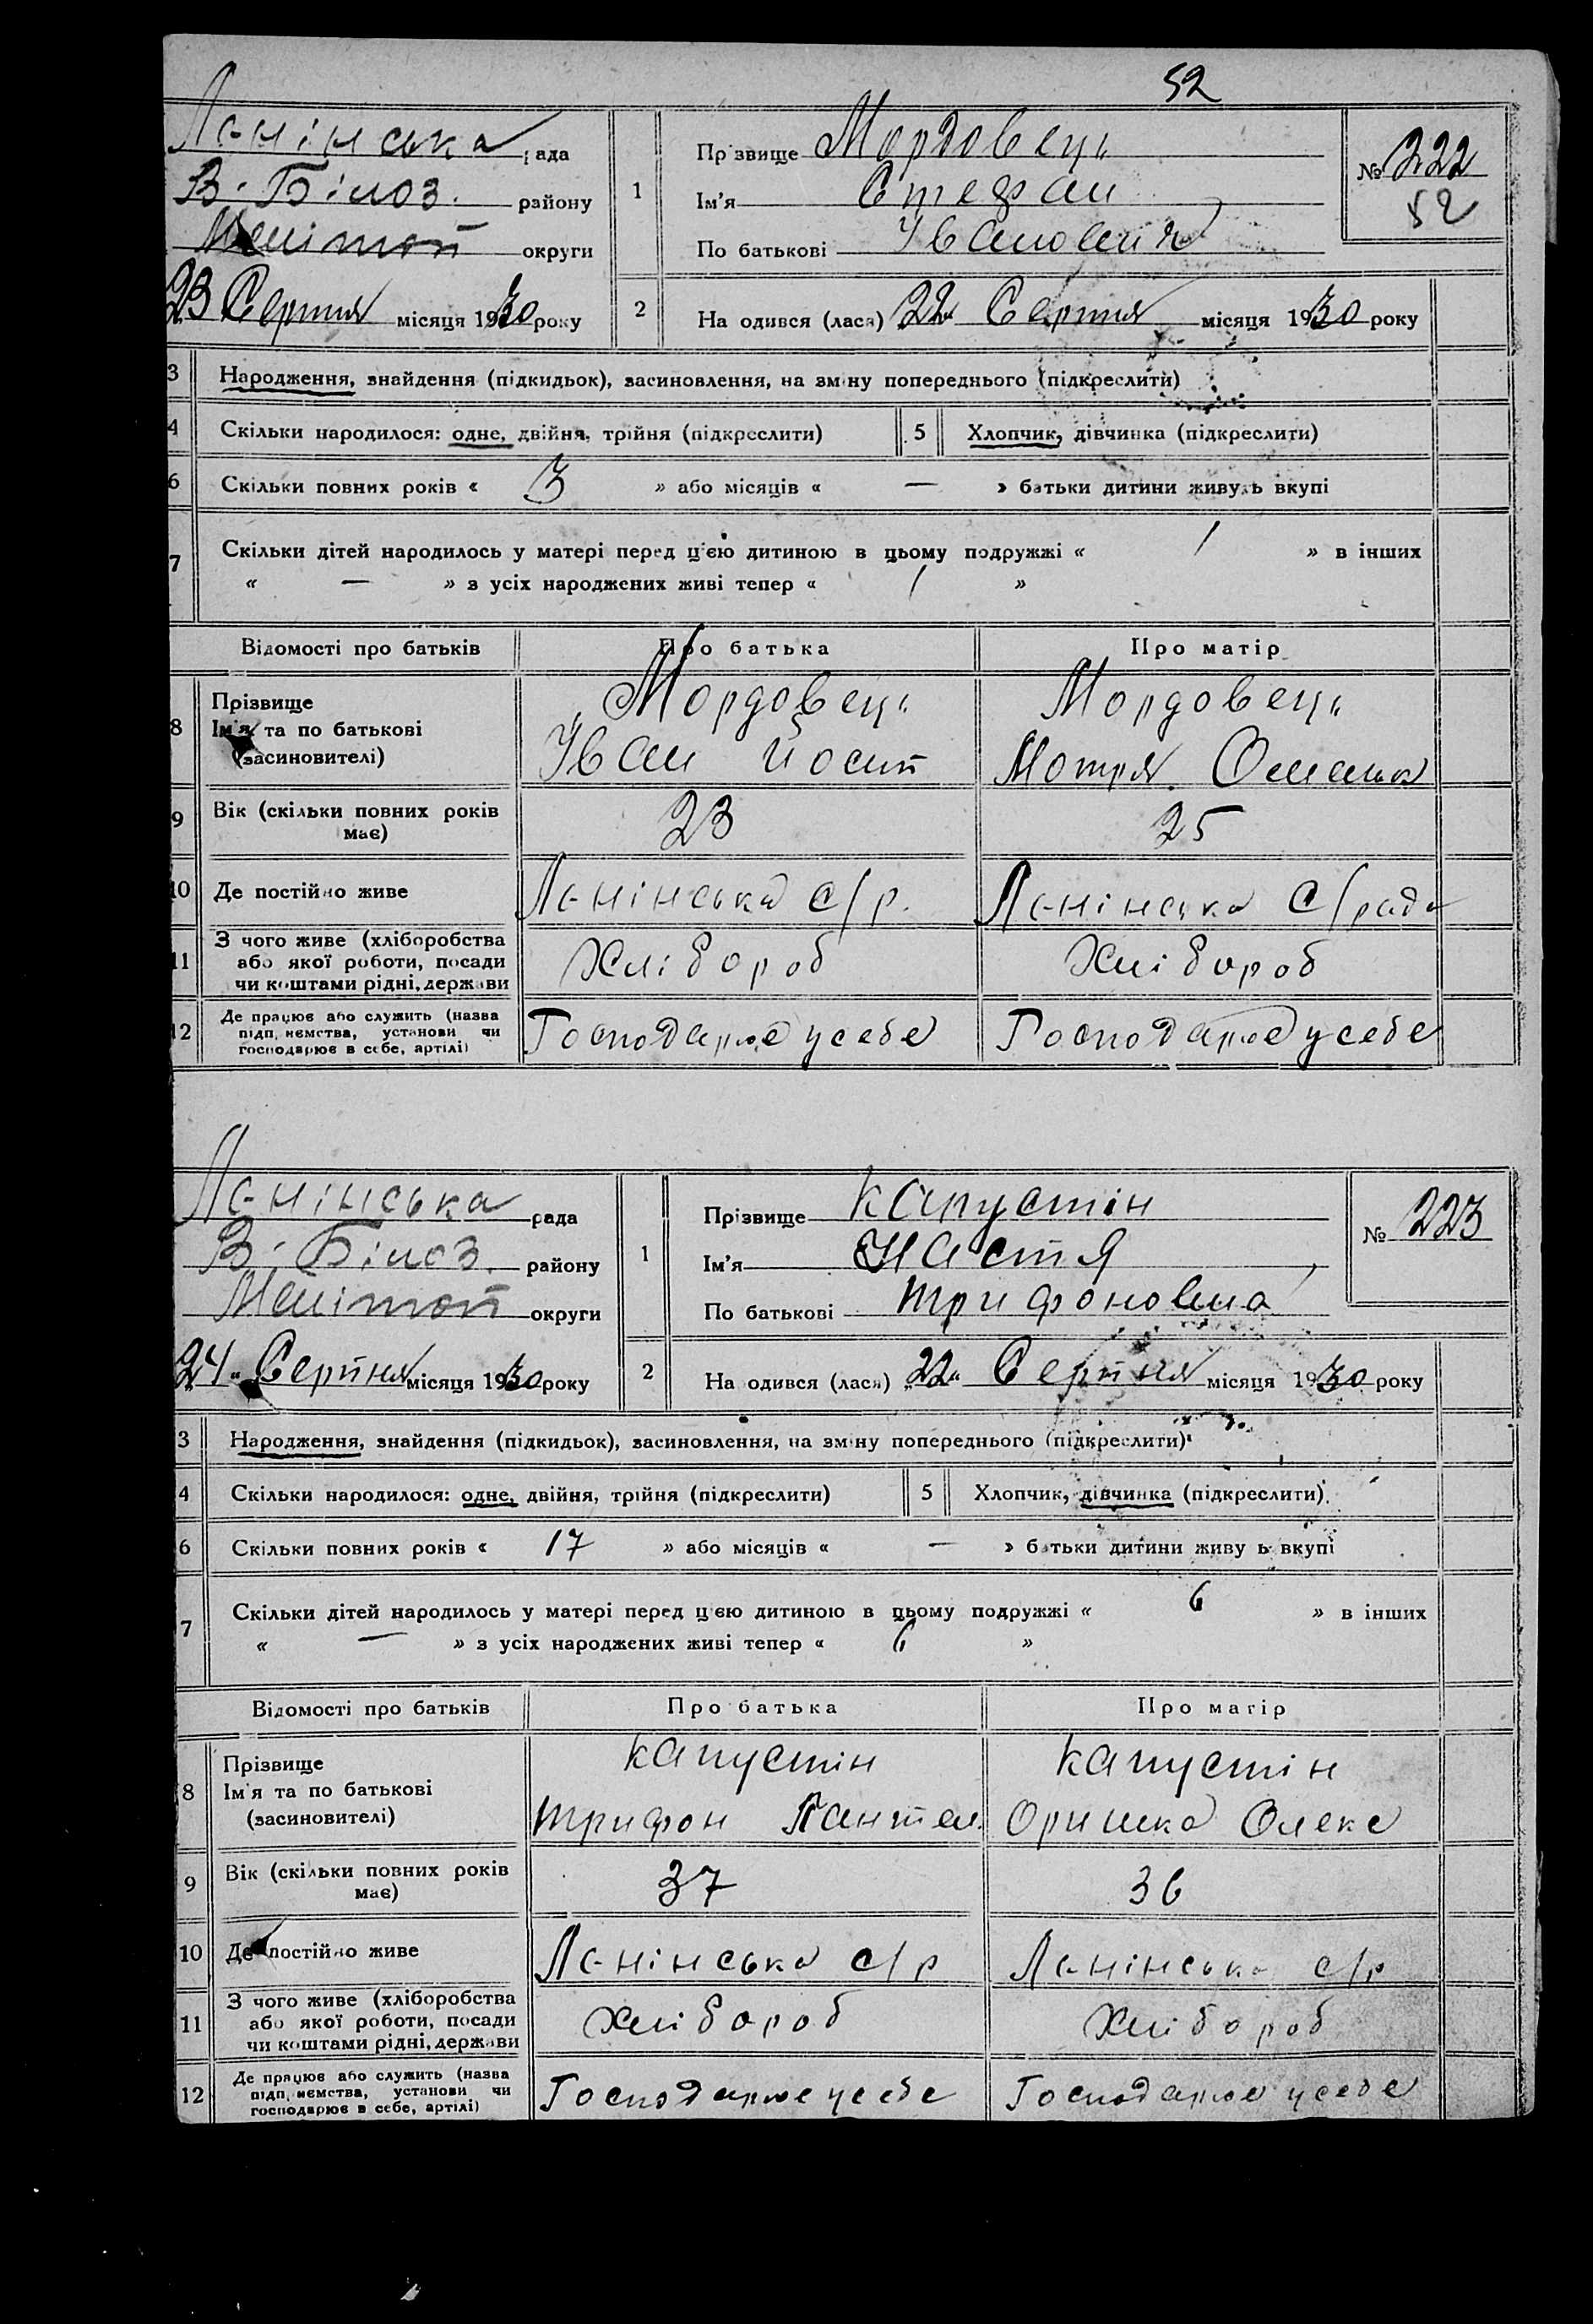 52
Ленінська рада
В. Білоз. району
Меліт​оп округи
23 Серпня місяця 1930 року
1
Прізвище Мордовець
Ім'я Стефан
По батькові Іванович
№ 222
52
2
На одився (лася) 22 Серпня місяця 1930 року
3 Народження, знайдення (підкидьок), засиновлення, на зміну попереднього (підкреслити)
4 Скільки народилося: одне, двійня, трійня (підкреслити) 5 Хлопчик, дівчинка (підкреслити)
6 Скільки повних років « 3 » або місяців « — » батьки дитини живуть вкупі
7 Скільки дітей народилось у матері перед цією дитиною в цьому подружжі « 1 » в інших
« — » з усіх народжених живі тепер « 1 »
Відомості про батьків Про батька Про матір
8 Прізвище Мордовець Мордовець
Ім'я та по батькові Іван Йосип Мотря
(засиновителі)
9 Вік (скільки повних років має) 23 25
10 Де постійно живе Ленінська с/р. Ленінська с/рада
11 З чого живе (хліборобства Хлібороб Хлібороб
або якої роботи, посади
чи коштами рідні, держави
12 Де працює або служить (назва Господарює у себе Господарює у себе
підприємства, установи чи
господарює в себе, артілі)
Ленінська рада
В. Білоз. району
Мелітоп округи
24 Серпня місяця 1930 року
1
Прізвище Капустін
Ім'я Настя
По батькові Трифоновна
№ 223
2
На одився (лася) „22" Серпня місяця 1930 року
3 Народження, знайдення (підкидьок), засиновлення, на зміну попереднього (підкреслити)
4 Скільки народилося: одне, двійня, трійня (підкреслити) 5 Хлопчик, дівчинка (підкреслити)
6 Скільки повних років « 17 » або місяців « — » батьки дитини живу ь вкупі
7 Скільки дітей народилось у матері перед цією дитиною в цьому подружжі « 6 » в інших
« — » з усіх народжених живі тепер « 6 »
Відомості про батьків Про батька Про матір
8 Прізвище Капустін Капустін
Ім'я та по батькові Трифон Пантел. Оришка Олекс
(засиновителі)
9 Вік (скільки повних років має) 37 36
10 Де постійно живе Ленінська с/р Ленінська с/р
11 З чого живе (хліборобства Хлібороб Хлібороб
або якої роботи, посади
чи коштами рідні, держави
12 Де працює або служить (назва Господарює у себе Господарює у себе
підприємства, установи чи
господарює в себе, артілі)